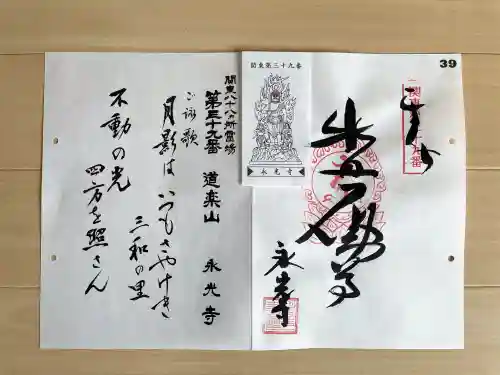 39
関東第三十九番
永光寺
奉
不動尊
永光寺
関東八十八ヵ所霊場
第三十九番 道楽山 永光寺
ご詠歌
月影は いつもさやけき
三和の里
不動の光
四方を照さん